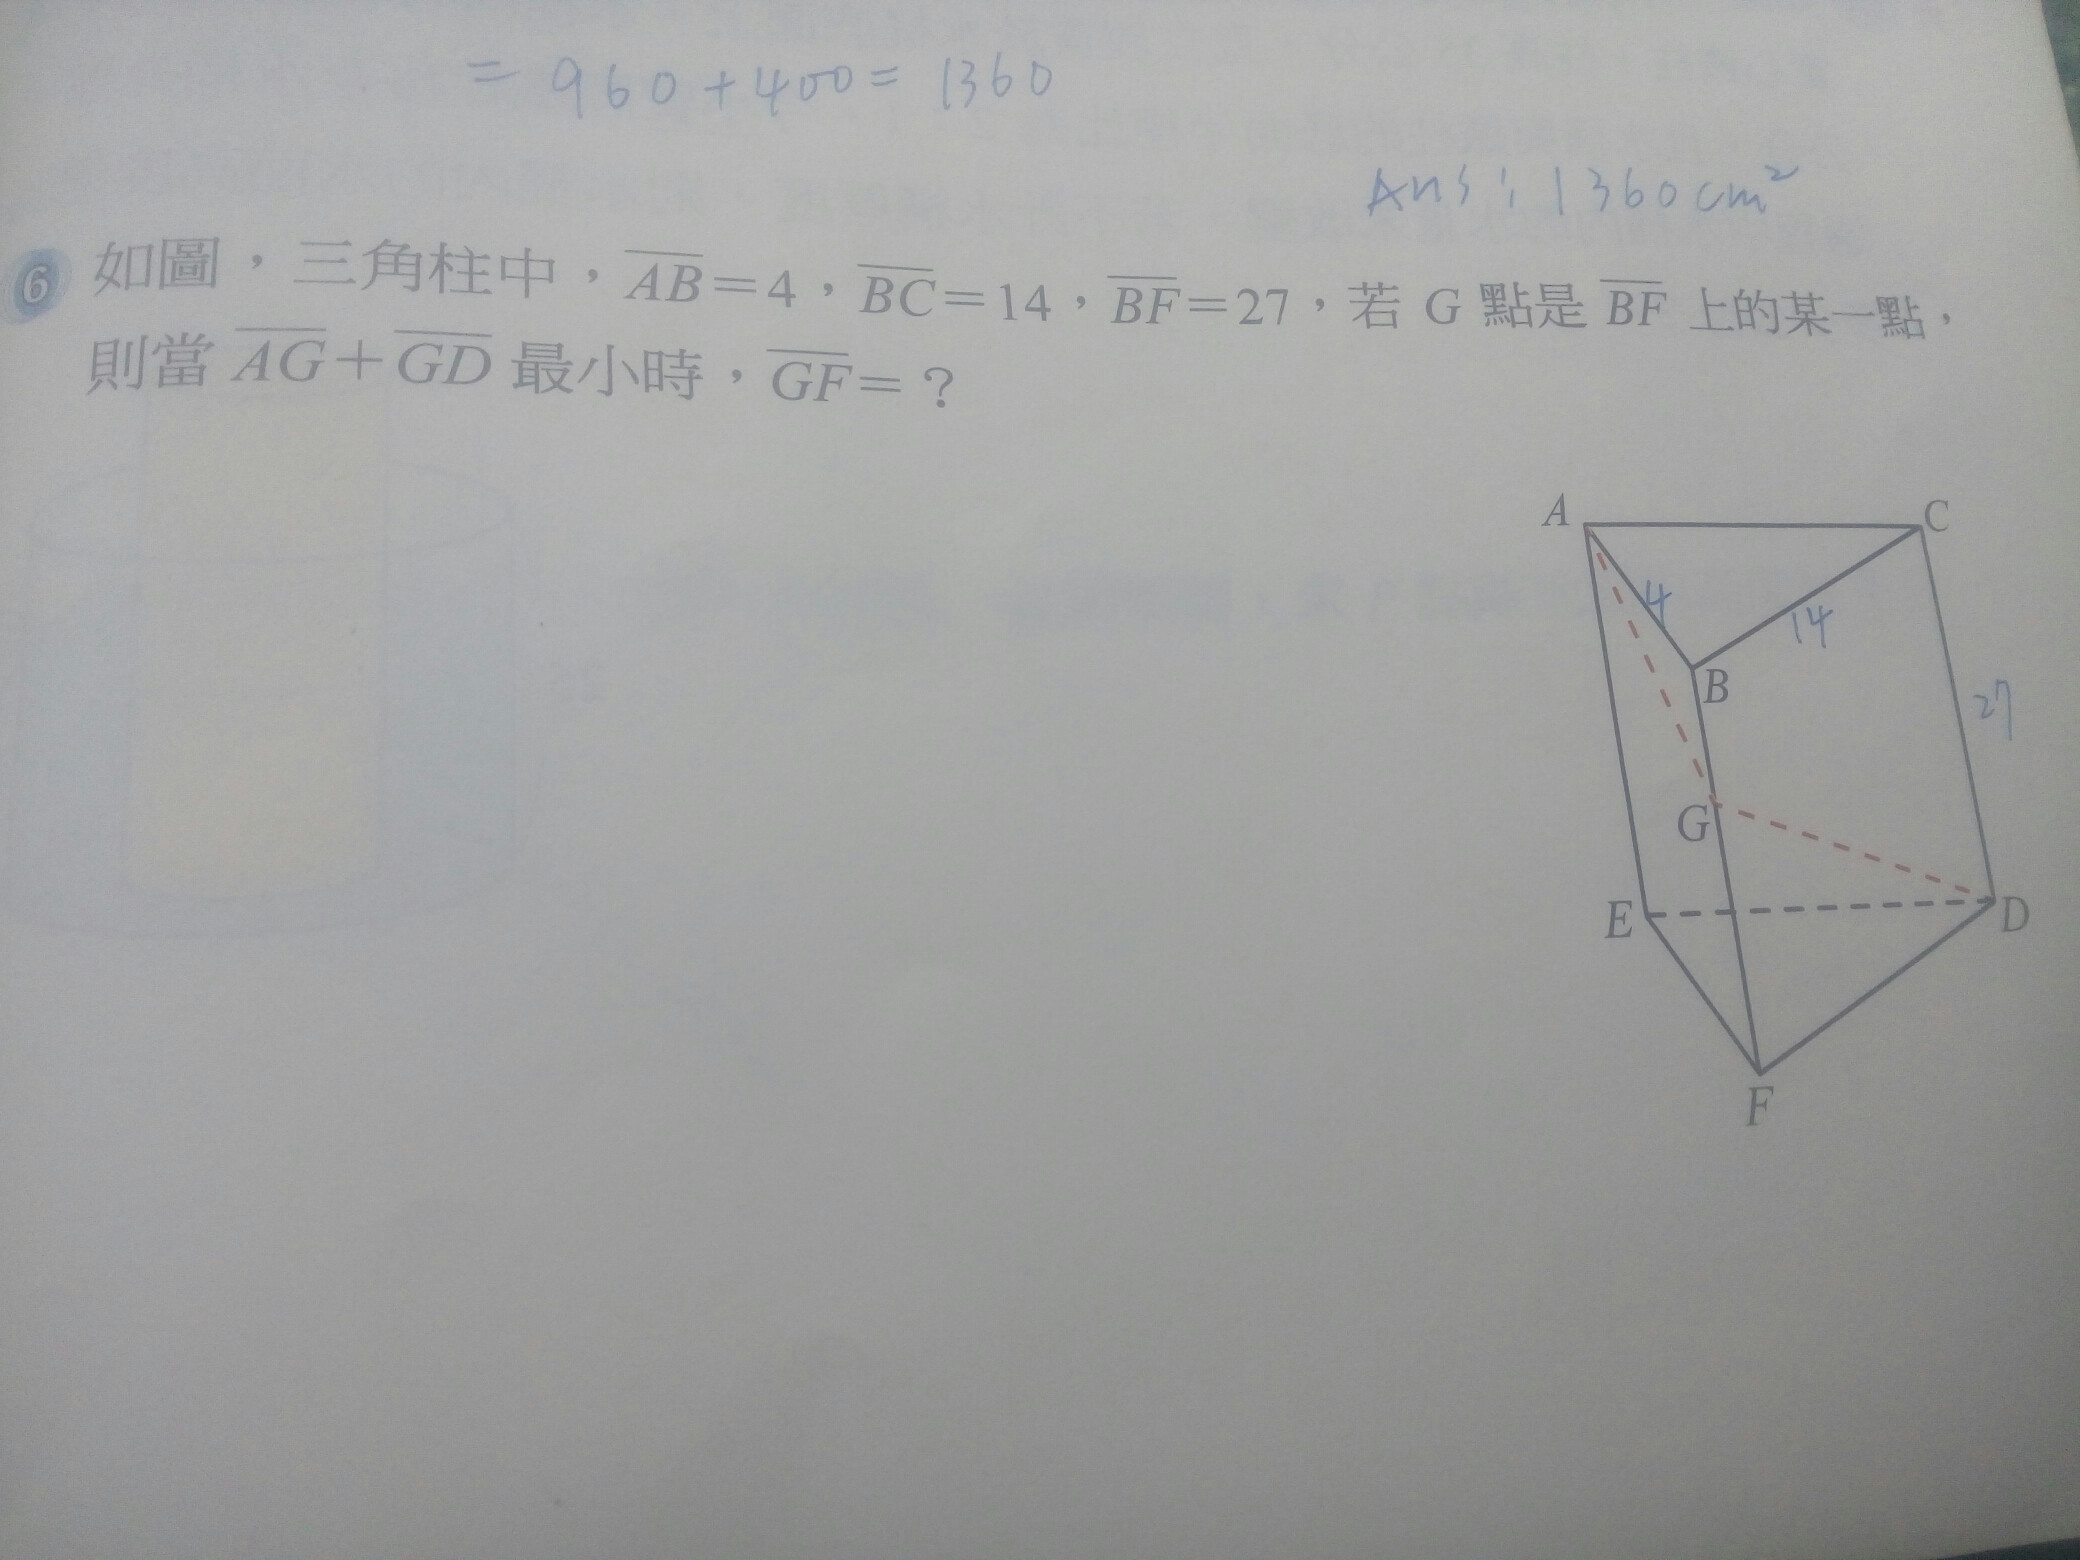 = 960+400= 1360
Ans: 1360cm²
6 如圖，三角柱中，AB=4，BC=14，BF=27，若 G 點是 BF 上的某一點，
則當 AG+GD 最小時，GF=？
A
C
4
14
B
27
G
E
D
F